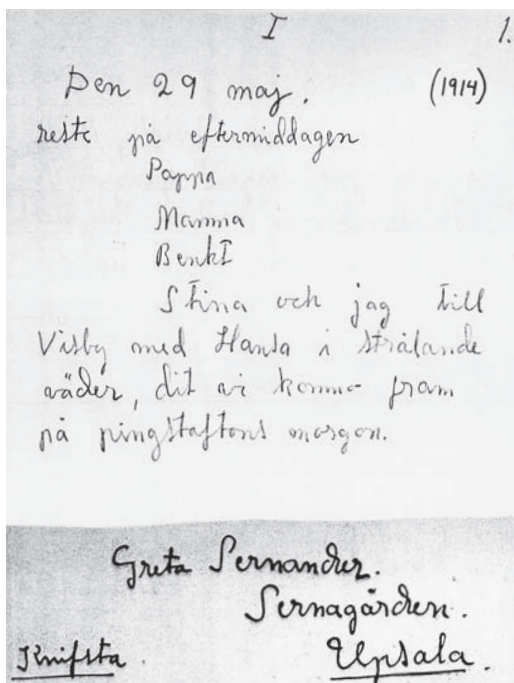 I 1.
Den 29 maj. (1914)
reste på eftermiddagen
Pappa
Mamma
Benkt
Stina och jag till
Visby med Hansa i strålande
väder, dit vi kommo fram
på pingstaftons morgon.
Greta Sernander.
Sernagården.
Knifsta. Upsala.